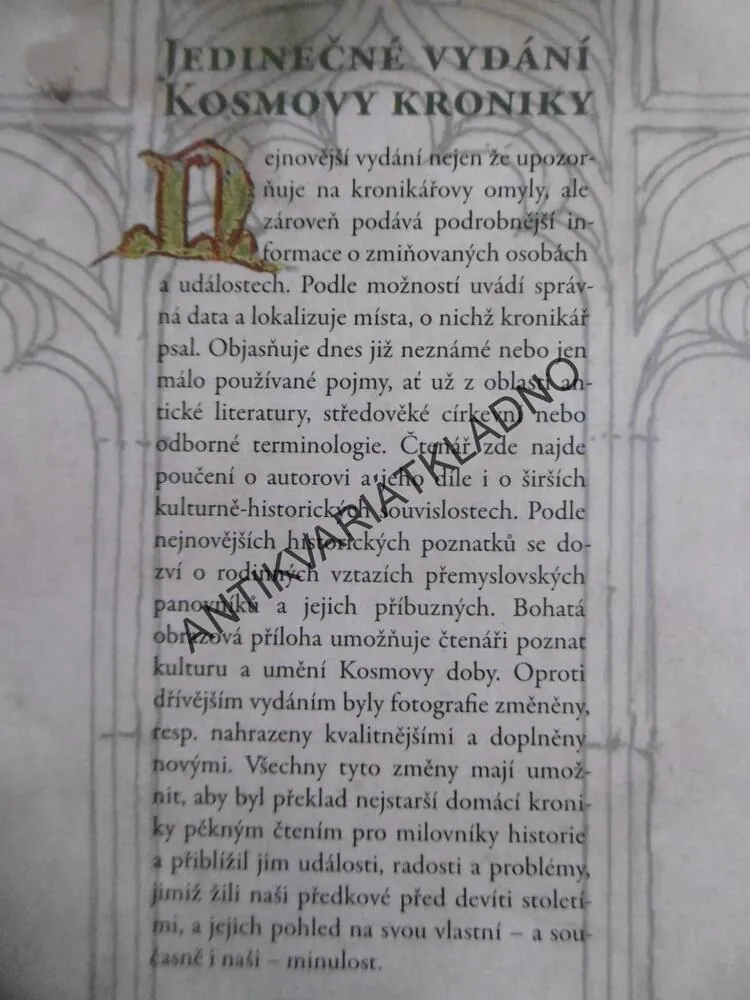 JEDINEČNÉ VYDÁNÍ
KOSMOVY KRONIKY
Nejnovější vydání nejen že upozor-
ňuje na kronikářovy omyly, ale
zároveň podává podrobnější in-
formace o zmiňovaných osobách
a událostech. Podle možností uvádí správ-
ná data a lokalizuje místa, o nichž kronikář
psal. Objasňuje dnes již neznámé nebo jen
málo používané pojmy, ať už z oblasti an-
tické literatury, středověké církevní nebo
odborné terminologie. Čtenář zde najde
poučení o autorovi a jeho díle i o širších
kulturně-historických souvislostech. Podle
nejnovějších historických poznatků se do-
zví o rodinných vztazích přemyslovských
panovníků a jejich příbuzných. Bohatá
obrazová příloha umožňuje čtenáři poznat
kulturu a umění Kosmovy doby. Oproti
dřívějším vydáním byly fotografie změněny,
resp. nahrazeny kvalitnějšími a doplněny
novými. Všechny tyto změny mají umož-
nit, aby byl překlad nejstarší domácí kroni-
ky pěkným čtením pro milovníky historie
a přiblížil jim události, radosti a problémy,
jimiž žili naši předkové před devíti století-
mi, a jejich pohled na svou vlastní – a sou-
časně i naši – minulost.
ANTIKVARIATKLADNO